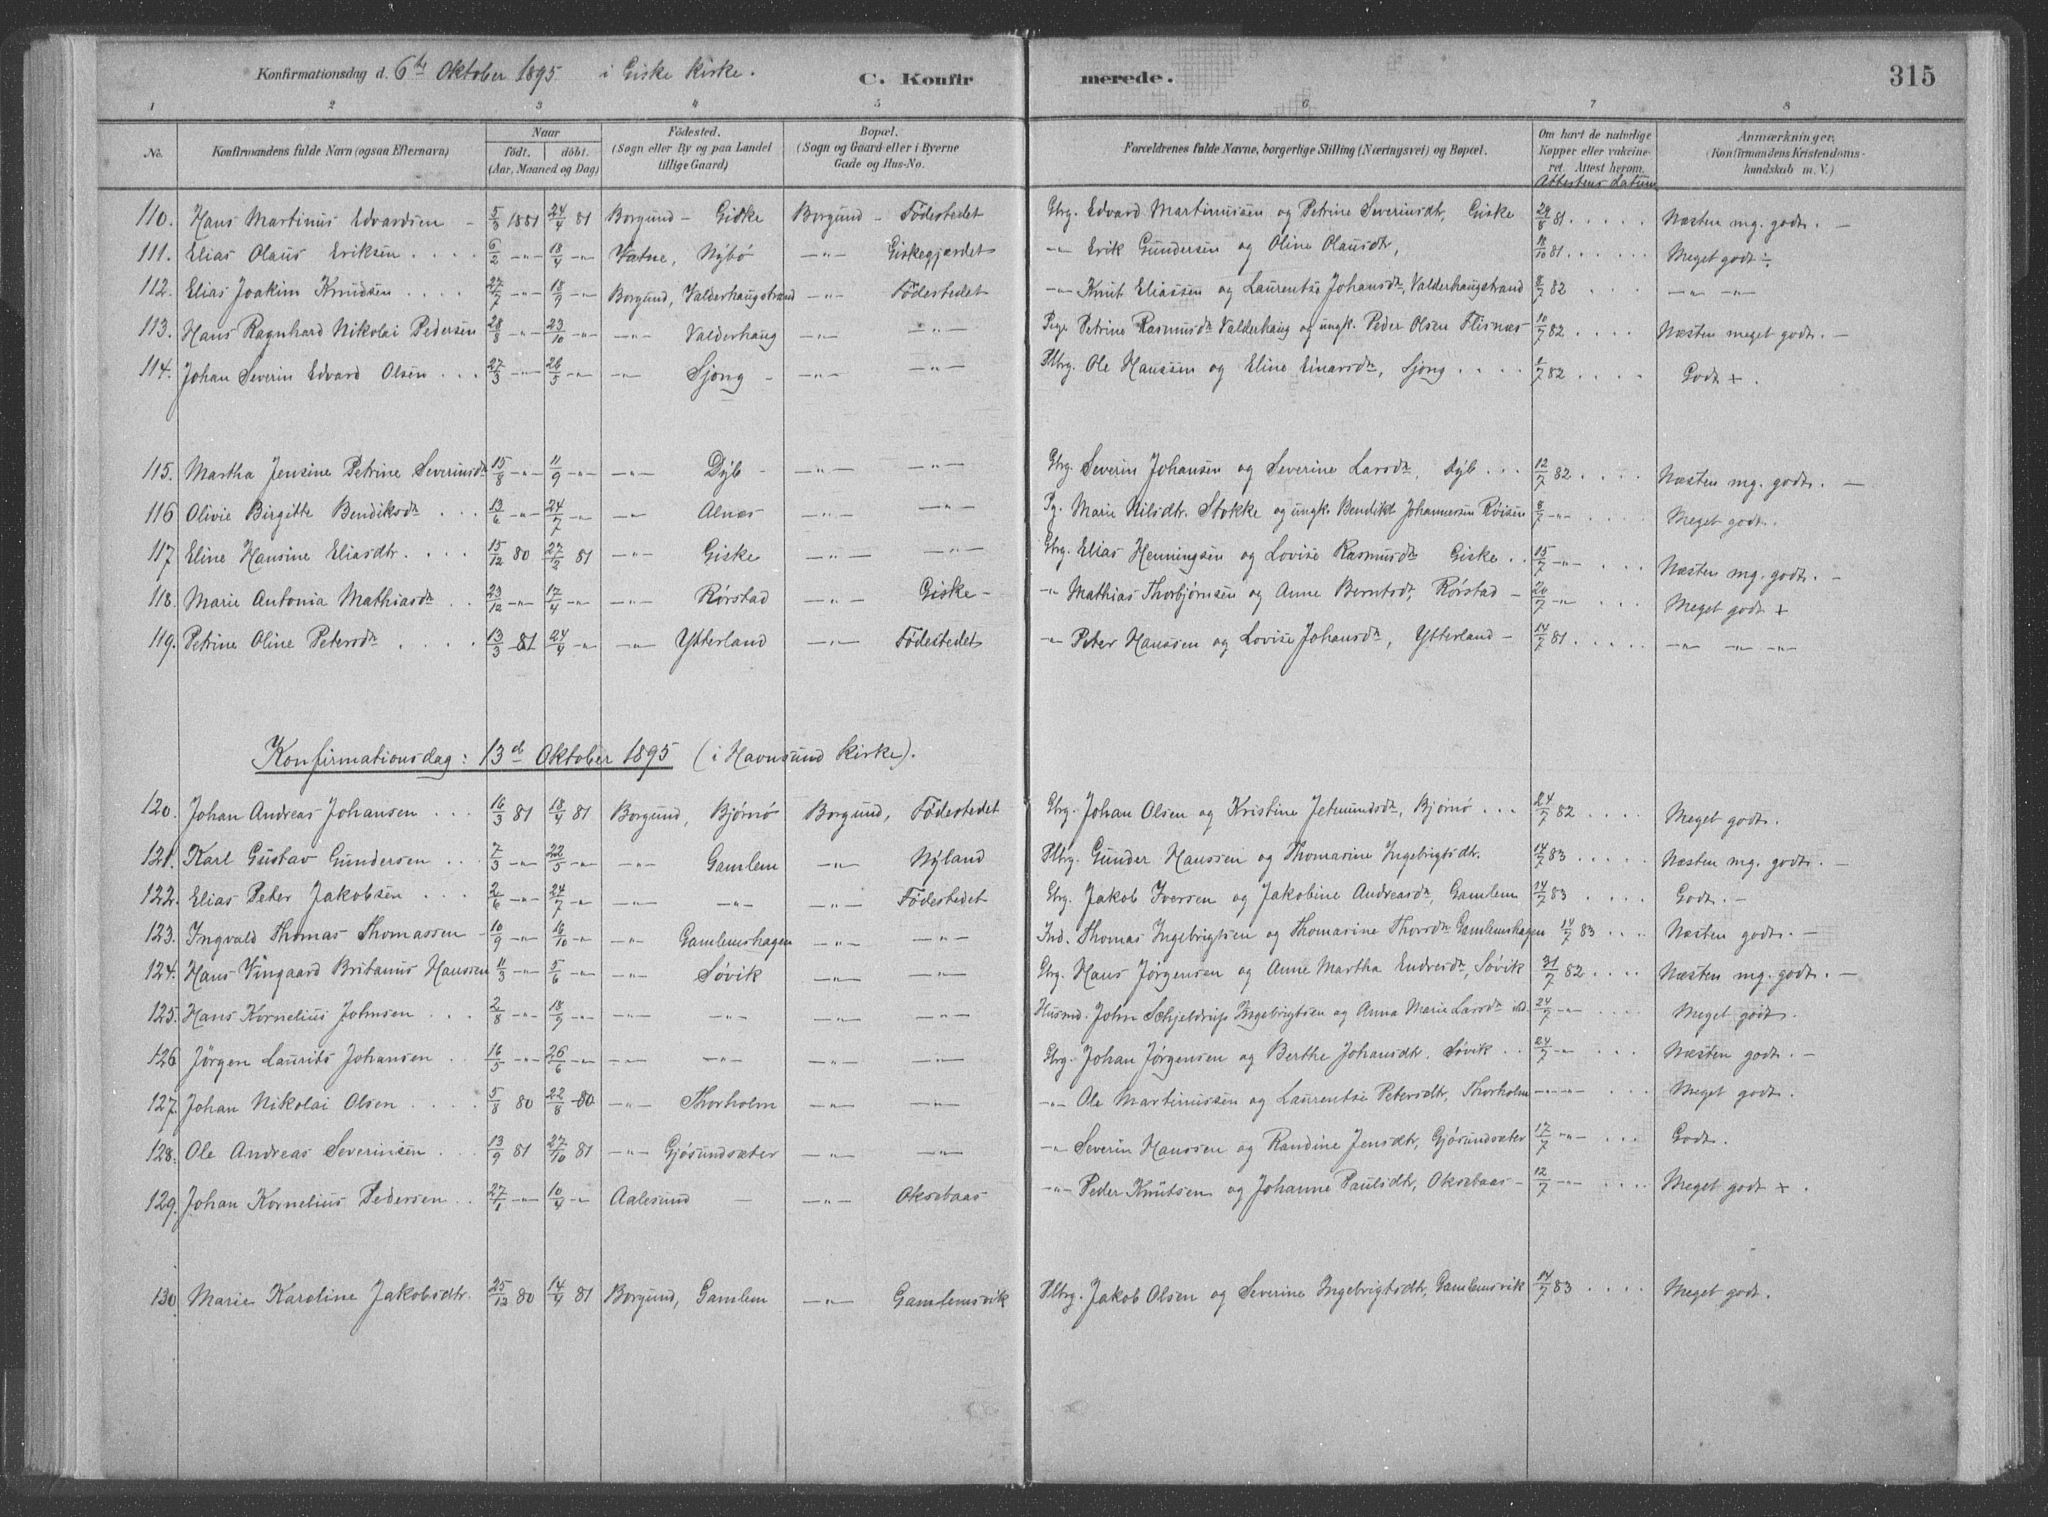 Konfirmationsdag d. 6te Oktober 1895 i Giske Kirke. C. Konfirmerede. 315
1 2 3 4 5 6 7 8
No. Konfirmandens fulde Navn (ogsaa Efternavn) Naar født. døbt. (Aar, Maaned og Dag) Fødested. (Sogn eller By og paa Landet tillige Gaard) Bopæl. (Sogn og Gaard eller i Byerne Gade og Hus-No. Forældrenes fulde Navne, borgerlige Stilling (Næringsvei) og Bopæl. Om havt de naturlige Kopper eller vakcineret. Attest herom. Attestens Datum Anmærkninger, (Konfirmandens Kristendomskundskab m. V.)
110. Hans Martinus Edvardsen - 5/3 1881 24/4 81 Borgund - Giske Borgund - Fødestedet Gbrg. Edvard Martinussen og Petrine Severinsdtr, Giske 29/8 81 . . . . Næsten mg. godt. -
111. Elias Olaus Eriksen . . . . 6/2 -"- 18/4 -"- Vatne, Nybø -"- Giskegjærdet -"- Erik Gundersen og Oline Olausdtr, 18/10 81 . . . . Meget godt ÷
112. Elias Joakim Knudsen . . . . 27/7 -"- 18/9 -"- Borgund, Valderhaugstrand -"- Fødestedet -"- Knut Eliassen og Laurentse Johansdtr, Valderhaugstrand 8/7 82 . . . . -"- -"-
113. Hans Ragnhard Nikolai Pedersen 28/8 -"- 23/10 -"- -"- Valderhaug -"- -"- Pige Petrine Rasmusdtr Valderhaug og ungk. Peder Olsen Flisnæs 10/7 82 . . . . Næsten meget godt. -
114. Johan Severin Edvard Olsen . . . 27/3 -"- 26/5 -"- -"- Sjong - -"- -"- Plbrg. Ole Hanssen og Eline Einarsdtr, Sjong . . . . 6/7 82 . . . . Godt + .
115. Martha Jensine Petrine Severinsdtr 15/8 -"- 11/9 -"- -"- Dyb - -"- -"- Gbrg. Severin Johansen og Severine Larsdtr, Dyb . . . 12/7 82 . . . . Næsten mg. godt. -
116 Olivie Birgitte Bendiksdtr . . 13/6 -"- 24/7 -"- -"- Alnæs -"- -"- Pg. Marie Nilsdtr. Stokke og ungk. Bendikt Johannesen Roisen 8/7 -"- . . . . Meget godt.
117 Eline Hansine Eliasdtr. . . . 15/12 80 27/2 81 -"- Giske -"- -"- Gbrg. Elias Henningsen og Lovise Rasmusdtr Giske . . 15/7 -"- . . . Næsten mg. godt. -
118. Marie Antonia Mathiasdtr . . 23/12 -"- 17/4 -"- -"- Rørstad -"- Giske - -"- Mathias Thorbjørnsen og Anne Berntsdtr, Rørstad - 20/7 -"- . . . Meget godt +
119. Petrine Oline Petersdtr . . . . 13/3 81 24/4 -"- -"- Ytterland -"- Fødestedet -"- Peter Hanssen og Lovise Johansdtr, Ytterland - 14/7 81 . . . . . -"- -"- -"-
Konfirmationsdag: 13d Oktober 1895 (i Havnsund Kirke).
120. Johan Andreas Johansen . . . 16/3 81 18/4 81 Borgund, Bjørnø Borgund, Fødestedet Gbrg. Johan Olsen og Kristine Jetmundsdtr, Bjørnø . . . 24/7 82 . . . . Meget godt.
121. Karl Gustav Gundersen . . . 7/3 -"- 22/5 -"- -"- Gamlem -"- Nyland Plbrg. Gunder Hanssen og Thomasine Ingebrigtsdtr. 14/7 83 . . . . . Næsten mg. godt. -
122. Elias Peter Jakobsen . . . 2/6 -"- 24/7 -"- -"- -"- -"- Fødestedet Gbrg. Jakob Iversen og Jakobine Andreasdtr, Gamlem 14/7 83 . . . . Godt. -
123. Ingvald Thomas Thomassen - 10/9 -"- 16/10 -"- -"- Gamlemshagen -"- -"- Ind. Thomas Ingebrigtsen og Thomasine Thorsdtr Gamlemshagen 14/7 83 . . . Næsten godt. -
124. Hans Vingaard Britanus Hanssen 11/3 -"- 5/6 -"- -"- Søvik -"- -"- Gbrg. Hans Jørgensen og Anne Martha Endresdtr, Søvik 31/7 82 . . . . Næsten mg. godt. -
125. Hans Kornelius Johnsen . . . 2/8 -"- 18/9 -"- -"- -"- -"- -"- Husmd. John Schjeldrup Ingebrigtsen og Anna Marie Larsdtr ibd. 24/7 -"- . . . . Meget godt.
126 Jørgen Laurits Johansen . . 16/5 -"- 26/6 -"- -"- -"- -"- -"- Gbrg. Johan Jørgensen og Berthe Johansdtr. Søvik . . 24/7 -"- . . . . Næsten godt. -
127. Johan Nikolai Olsen . . . . 5/8 80 22/8 80 -"- Thorholm -"- -"- -"- Ole Martinussen og Laurentse Petersdtr, Thorholm -"- -"- . . . Meget godt.
128. Ole Andreas Severinsen . . . 13/9 81 27/10 81 -"- Gjøsundsæter -"- -"- -"- Severin Hanssen og Randine Jensdtr, Gjøsundsæter 17/7 -"- . . . Godt.
129. Johan Kornelius Pedersen . . 27/1 -"- 10/4 -"- Aalesund - -"- Oksebaas -"- Peder Knutsen og Johanne Paulsdtr, Oksebaas - 12/7 -"- . . . Meget godt + .
130 Marie Karoline Jakobsdtr. 25/12 80 14/4 81 Borgund, Gamlem -"- Gamlemsvik Plbrg. Jakob Olsen og Severine Ingebrigtsdtr, Gamlemsvik 14/7 83 . . . . Meget godt.